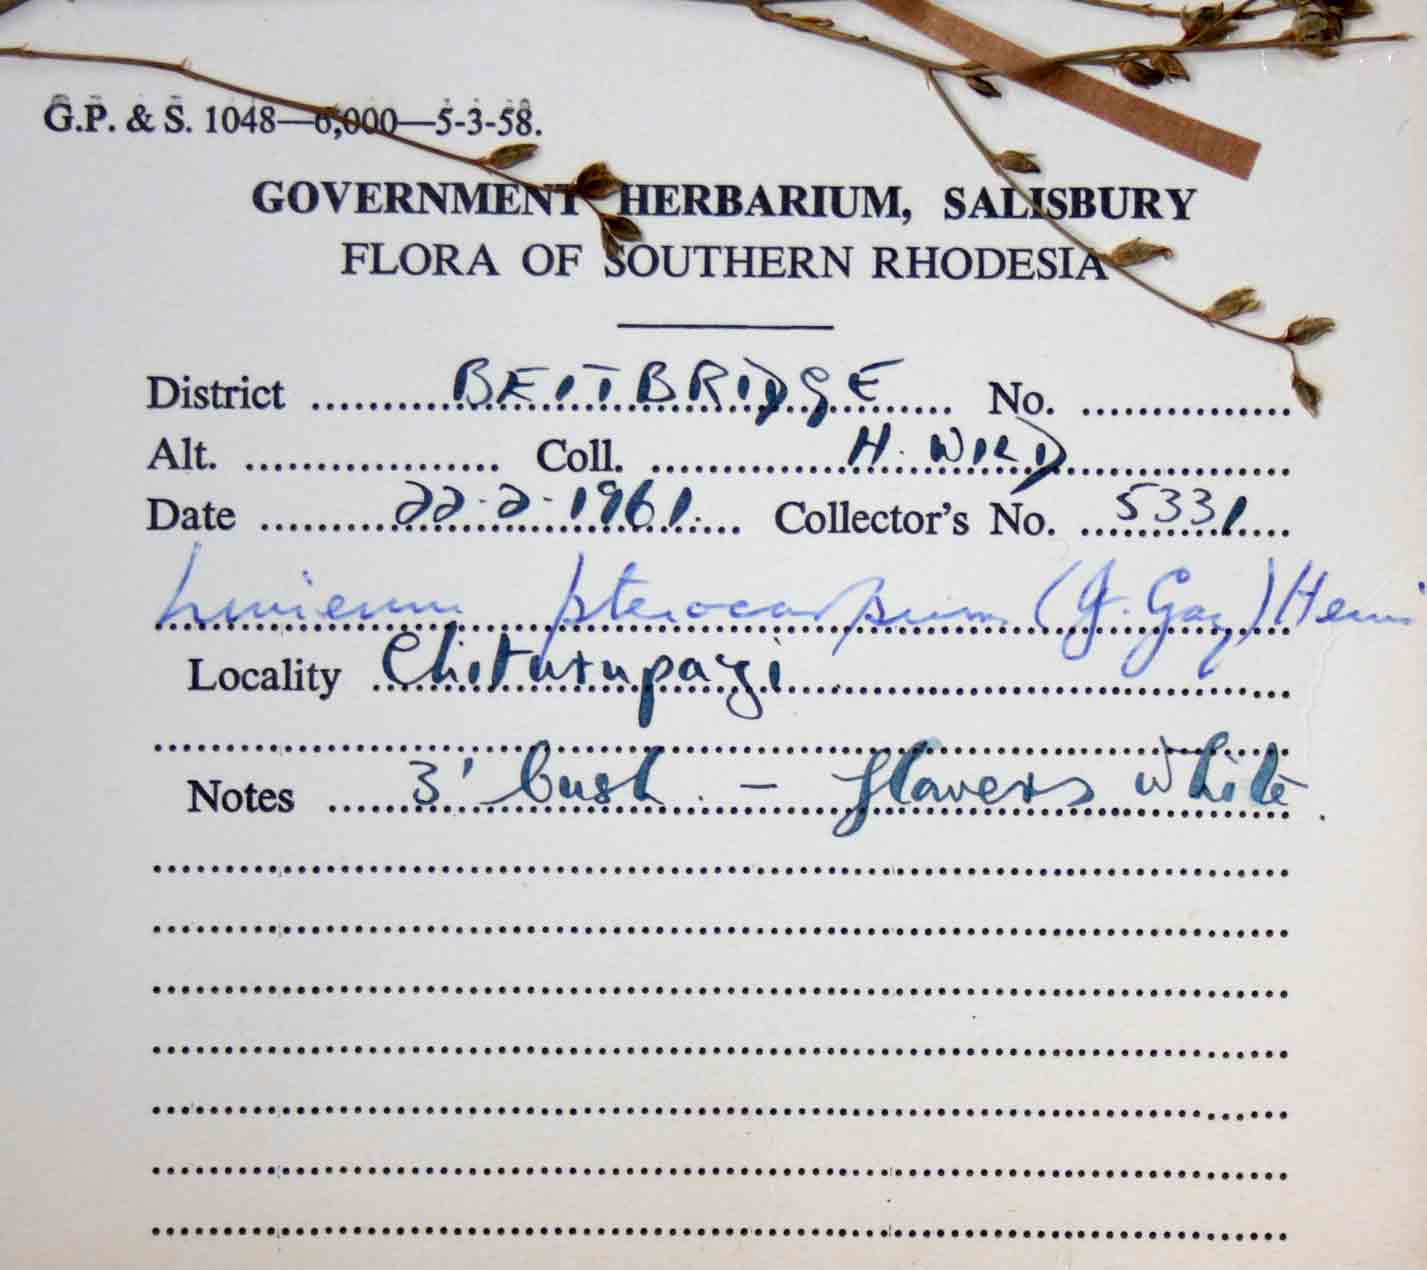 G.P. & S. 1048—6,000—5-3-58.
GOVERNMENT HERBARIUM, SALISBURY
FLORA OF SOUTHERN RHODESIA
District BEITBRIDGE No.
Alt. Coll. H. WILD
Date 22-2-1961. Collector's No. 5331
pterocarpum (J. Gay)
Locality Chiturupazi
Notes 3' bush - flowers white.